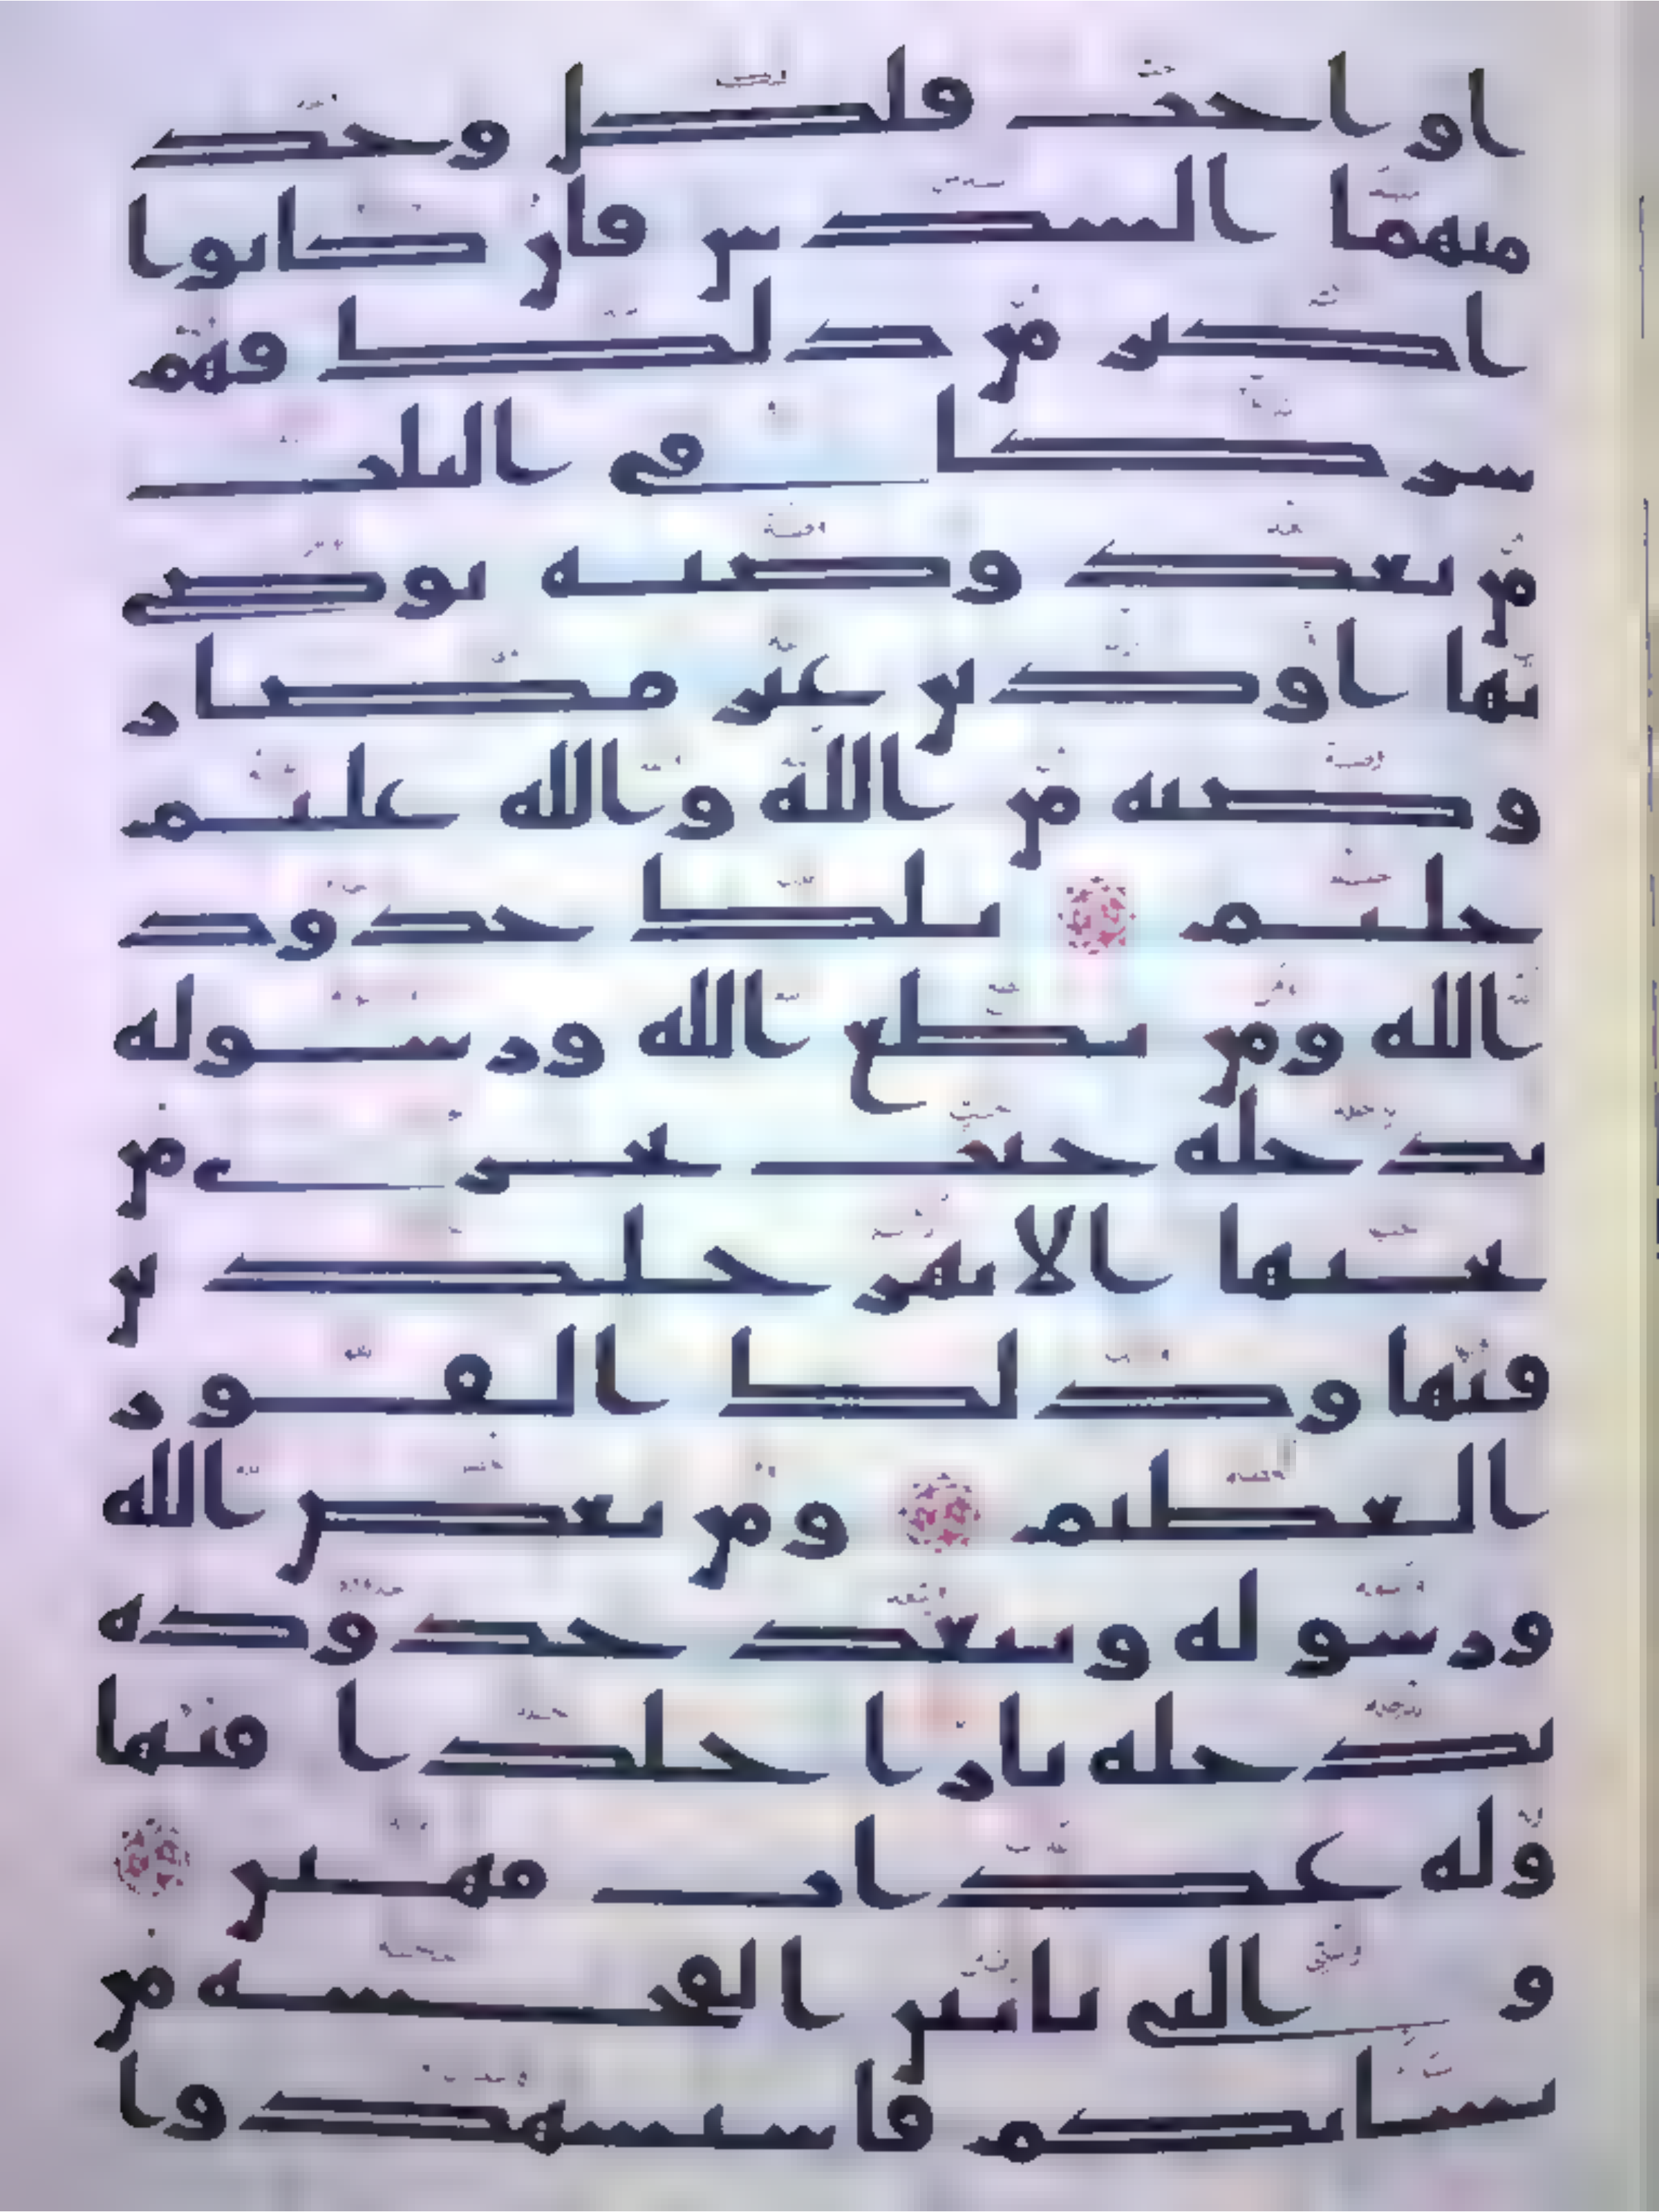 او اخت فلكل وحد
منهما السدس فان كانوا
اكثر من ذلك فهم
شركا في الثلث
من بعد وصيه يوصي
بها او دين غير مضار
وصيه من الله والله عليم
حليم تلك حدود
الله ومن يطع الله ورسوله
يدخله جنت تجري من
تحتها الانهر خلدين
فيها وذلك الفوز
العظيم ومن يعص الله
ورسوله ويتعد حدوده
يدخله نارا خلدا فيها
وله عذاب مهين
والتي ياتين الفحشه من
نسايكم فاستشهدوا